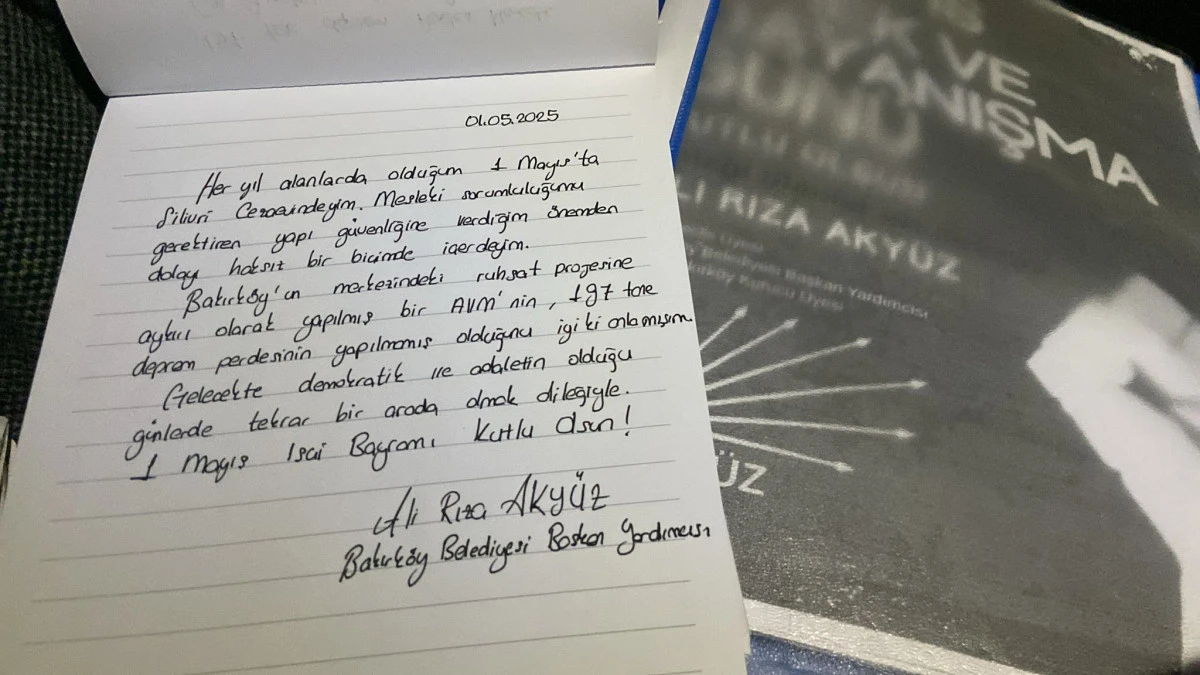 01.05.2025
Her yıl alanlarda olduğum 1 Mayıs'ta
Silivri Cezaevindeyim. Mesleki sorumluluğumu
gerektiren yapı güvenliğine verdiğim önemden
dolayı haksız bir biçimde içerdeyim.
Bakırköy'ün merkezindeki ruhsat projesine
aykırı olarak yapılmış bir AVM'nin, 197 tane
deprem perdesinin yapılmamış olduğunu iyi ki anlamışım.
Gelecekte demokratik ve adaletin olduğu
günlerde tekrar bir arada olmak dileğiyle.
1 Mayıs İşçi Bayramı Kutlu Olsun!
Ali Rıza AKYÜZ
Bakırköy Belediyesi Başkan Yardımcısı
VE
RIZA AKYÜZ
Belediyesi Başkan Yardımcısı
Üyesi